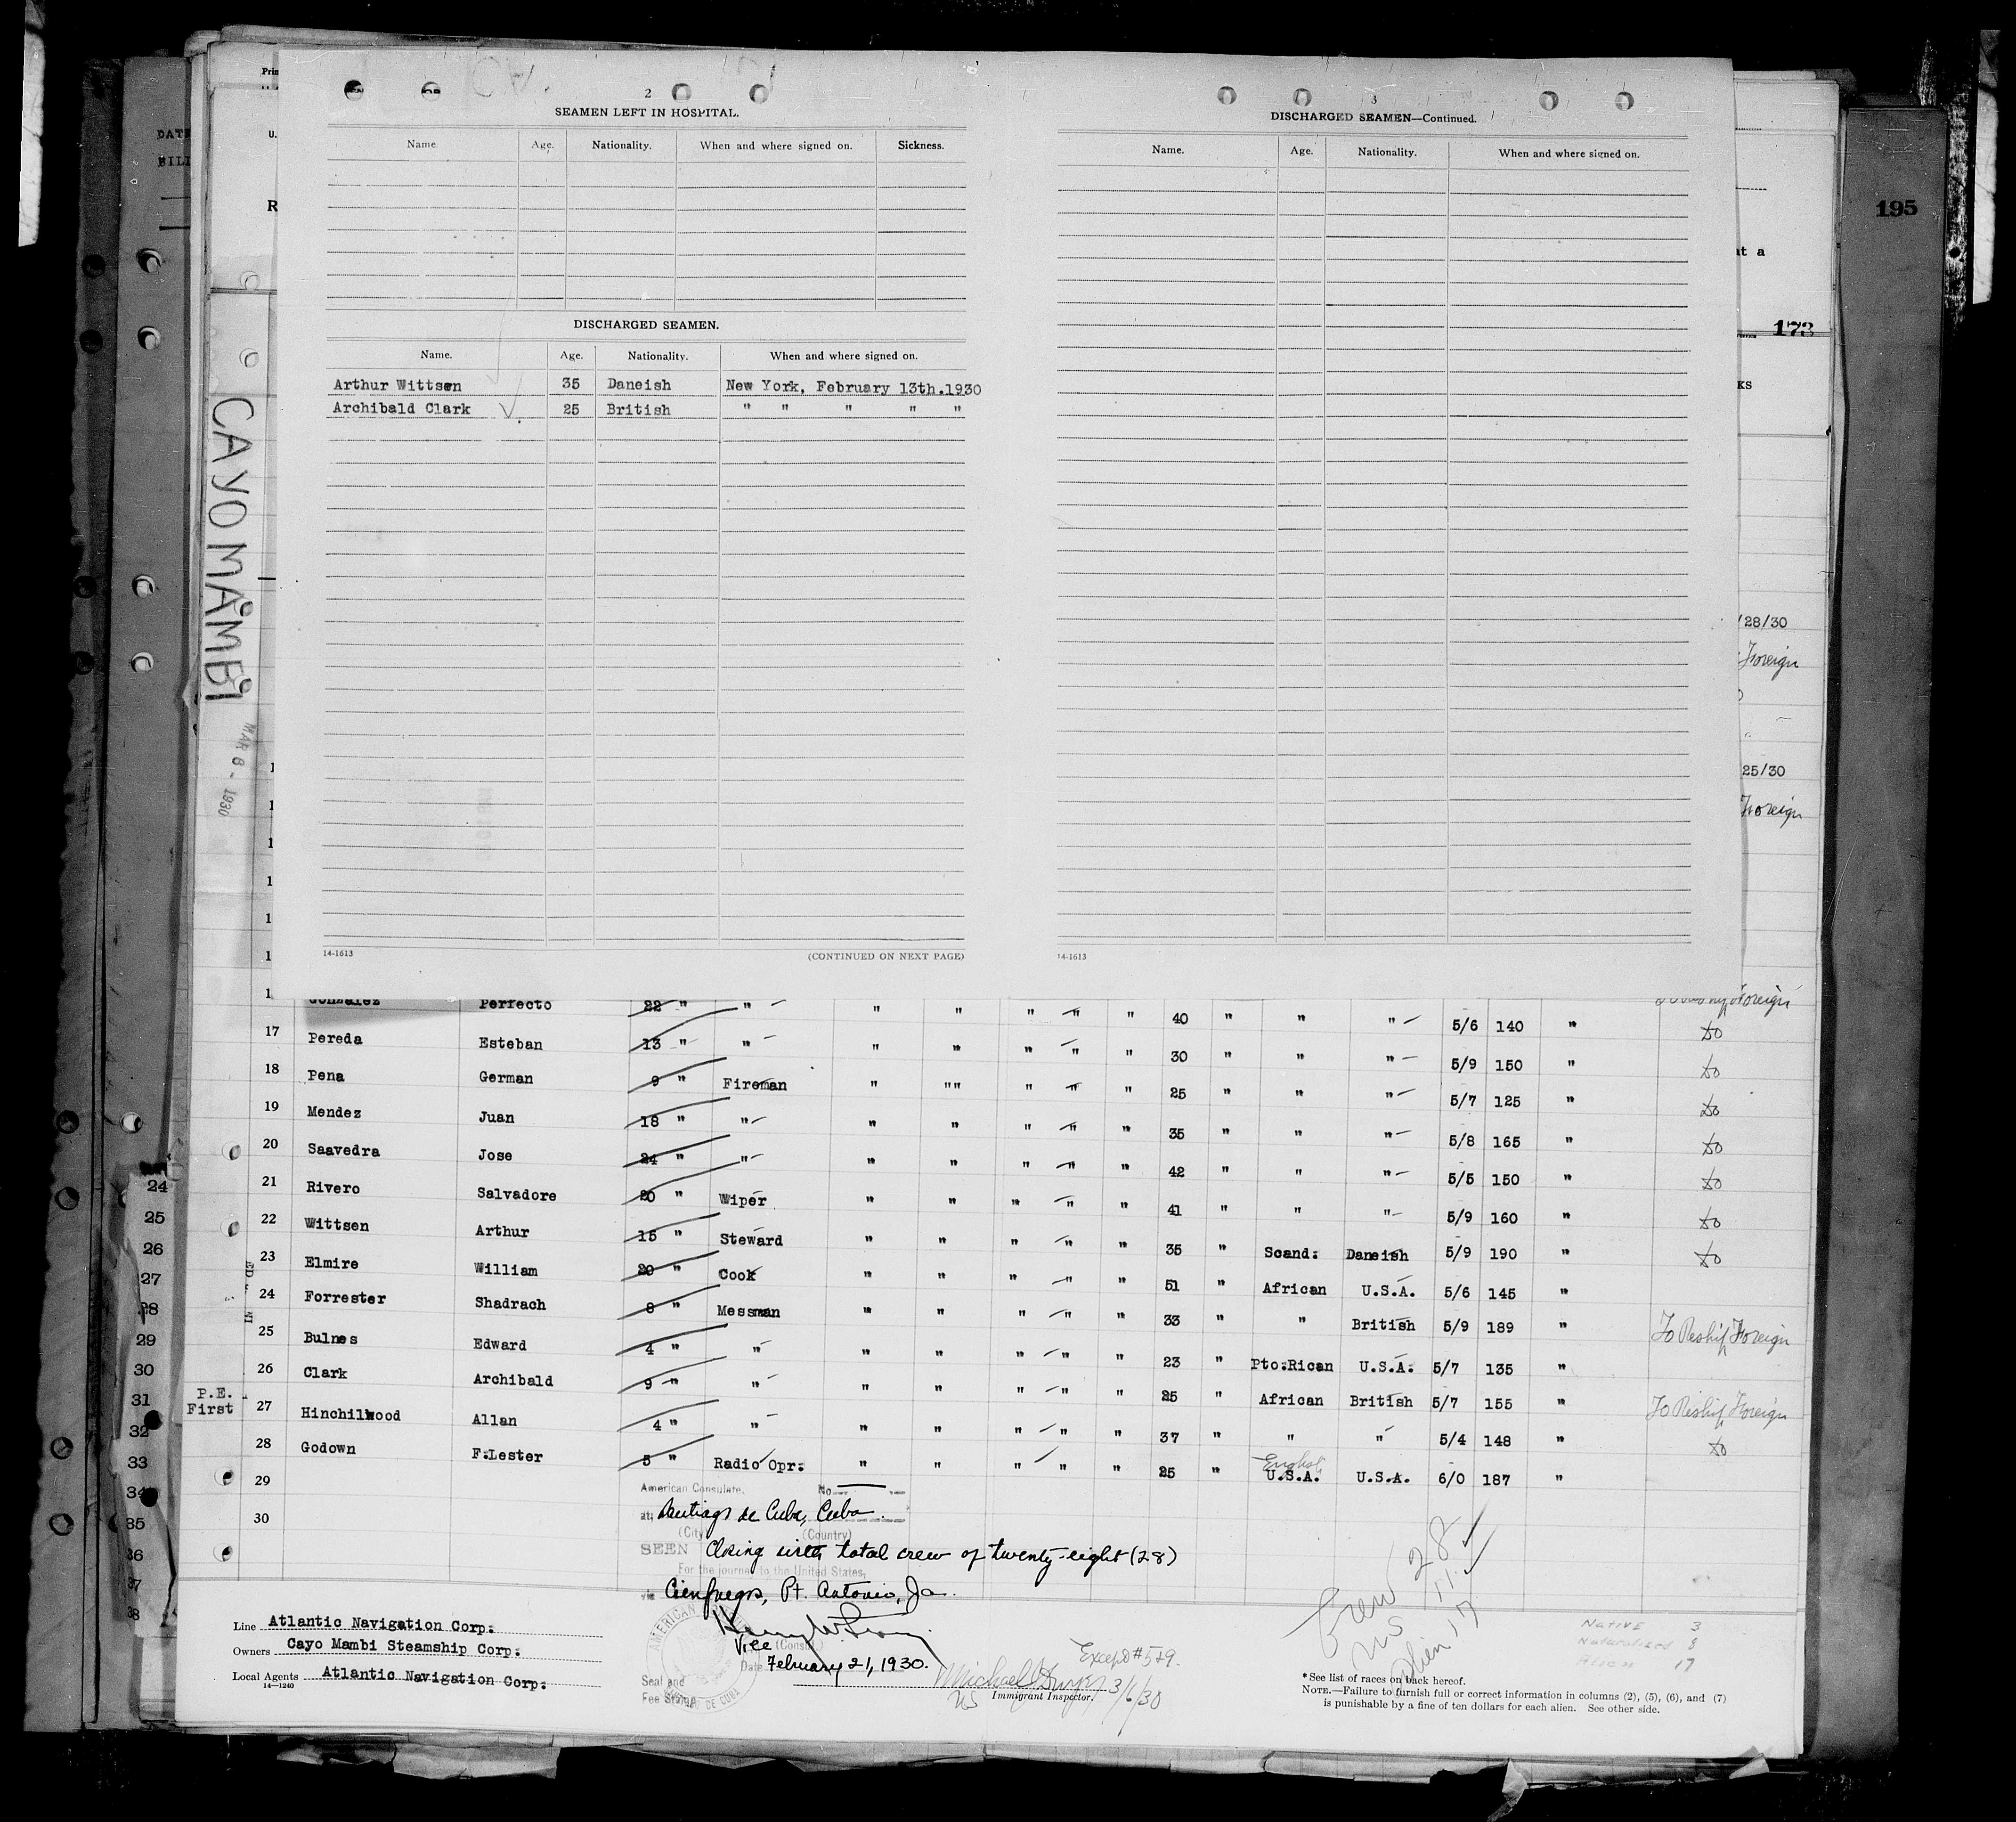 195
DATE
BILL
Prin
U.
R
at a
173
KS
CAYO MAMBI
MAR 6 - 1930
2
SEAMEN LEFT IN HOSPITAL.
Name. Age. Nationality. When and where signed on. Sickness.
DISCHARGED SEAMEN.
Name. Age. Nationality. When and where signed on.
Arthur Wittsen 35 Daneish New York, February 13th.1930
Archibald Clark 25 British " " " " "
14-1613 (CONTINUED ON NEXT PAGE)
3
DISCHARGED SEAMEN—Continued.
Name. Age. Nationality. When and where signed on.
14-1613
/28/30
Foreign
25/30
Foreign
Gonzalez Perfecto 22 " " " " " " " 40 " " " 5/6 140 " Foreign
17 Pereda Esteban 13 " " " " " " " 30 " " " 5/9 150 " do
18 Pena German 9 " Fireman " "" " " " 25 " " " 5/7 125 " do
19 Mendez Juan 18 " " " " " " " 35 " " " 5/8 165 " do
20 Saavedra Jose 24 " " " " " " " 42 " " " 5/5 150 " do
21 Rivero Salvadore 20 " Wiper " " " " " 41 " " " 5/9 160 " do
22 Wittsen Arthur 15 " Steward " " " " " 35 " Scand: Daneish 5/9 190 " do
23 Elmire William 20 " Cook " " " " " 51 " African U.S.A. 5/6 145 "
24 Forrester Shadrach 8 " Messman " " " " " 33 " " British 5/9 189 " To Reship Foreign
25 Bulnes Edward 4 " " " " " " " 23 " Pto:Rican U.S.A: 5/7 135 "
26 Clark Archibald 9 " " " " " " " 25 " African British 5/7 155 " To Reship Foreign
P.E. First 27 Hinchilwood Allan 4 " " " " " " " 37 " " " 5/4 148 " do
28 Godown F:Lester 5 " Radio Opr: " " " " " 25 " English U.S.A. U.S.A. 6/0 187 "
29
30
24
25
26
27
28
29
30
31
32
33
34
35
36
37
38
American Consulate, No.
at Santiago de Cuba, Cuba.
(City) (Country)
SEEN Closing with total crew of twenty-eight (28)
For the journey to the United States,
via Cienfuegos, Pt. Antonio, Ja.
Vice (Consul)
Date February 21, 1930.
Seal and
Fee Stamp
AMERICAN
DE CUBA
Line Atlantic Navigation Corp:
Owners Cayo Mambi Steamship Corp:
Local Agents Atlantic Navigation Corp:
14—1240
Except #5+9.
3/6/30
US Immigrant Inspector.
Crew 28
US 11
Alien 17
Native 3
Naturalized 8
Alien 17
*See list of races on back hereof.
NOTE.—Failure to furnish full or correct information in columns (2), (5), (6), and (7)
is punishable by a fine of ten dollars for each alien. See other side.